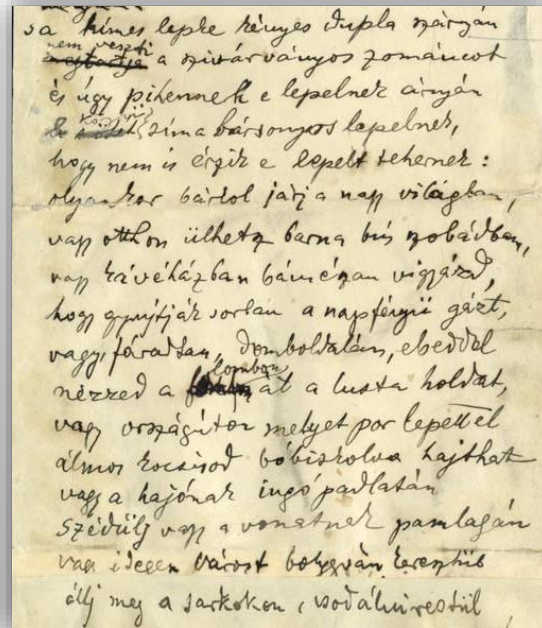 s a hímes lepke kényes dupla szárnyán
nem veszti
megtartja a szivárványos zománcot
és úgy pihennek e lepelnek árnyán
e sima bársonyos lepelnek,
hogy nem is érzik e lepelt tehernek:
olyankor bárhol járj a nagy világban,
vagy otthon ülhetsz barna bús szobádban,
vagy kávéházban bámészan vigyázd,
hogy gyujtják sorban a napfényü gázt,
vagy fáradtan, domboldalán, ebeddel
lombon
nézzed a át a lusta holdat,
vagy országúton melyet por lepett el
álmos kocsisod bóbiskolva hajthat
vagy a hajónak ingó padlatán
szédülj vagy a vonatnak pamlagán
vagy idegen várost bolygván keresztül
állj meg a sarkokon csodálni restül